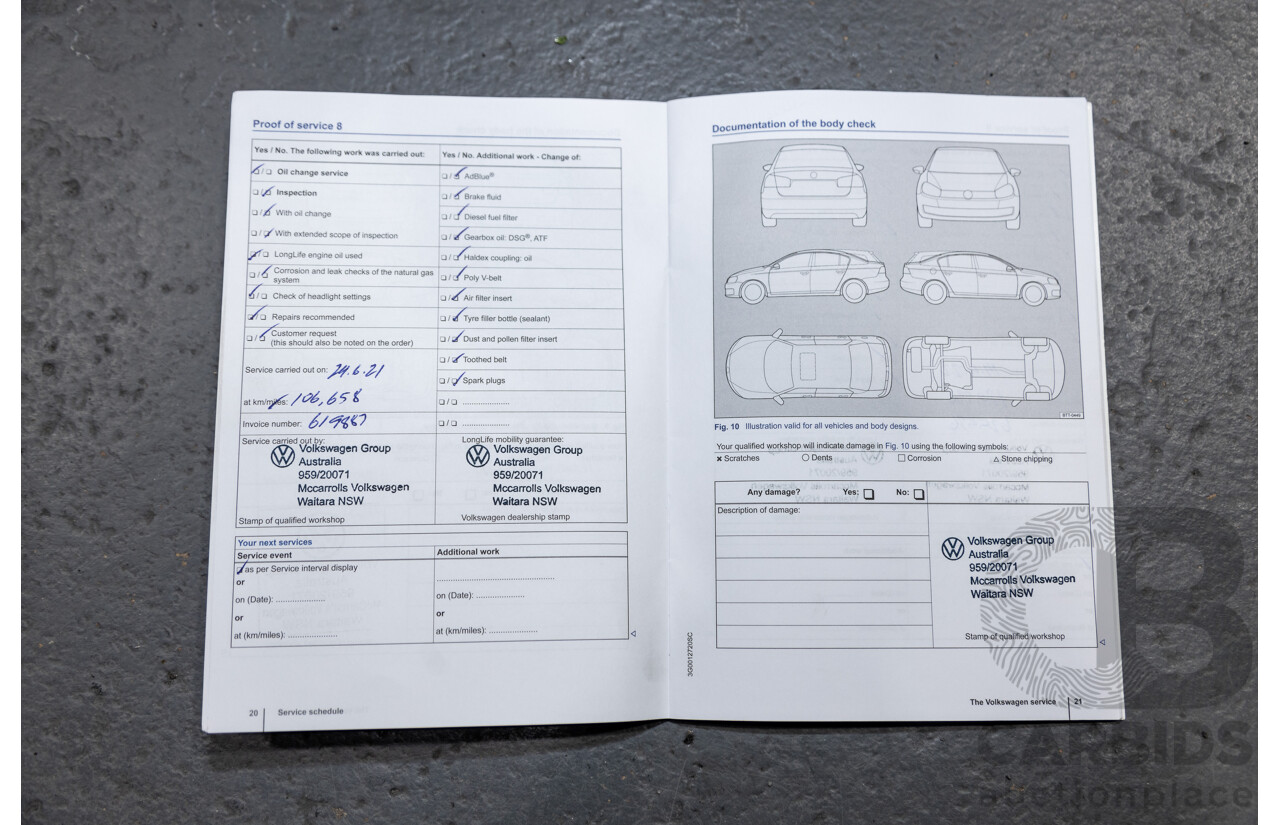 Proof of service 8
Yes / No. The following work was carried out:
❑ / ❑ Oil change service
❑ / ❑ Inspection
❑ / ❑ With oil change
❑ / ❑ With extended scope of inspection
❑ / ❑ LongLife engine oil used
❑ / ❑ Corrosion and leak checks of the natural gas
system
❑ / ❑ Check of headlight settings
❑ / ❑ Repairs recommended
❑ / ❑ Customer request
(this should also be noted on the order)
Service carried out on: 24.6.21
at km/miles: 106,658
Invoice number: 619887
Yes / No. Additional work - Change of:
❑ / ❑ AdBlue®
❑ / ❑ Brake fluid
❑ / ❑ Diesel fuel filter
❑ / ❑ Gearbox oil: DSG®, ATF
❑ / ❑ Haldex coupling: oil
❑ / ❑ Poly V-belt
❑ / ❑ Air filter insert
❑ / ❑ Tyre filler bottle (sealant)
❑ / ❑ Dust and pollen filter insert
❑ / ❑ Toothed belt
❑ / ❑ Spark plugs
❑ / ❑ .....................
❑ / ❑ .....................
Service carried out by:
Volkswagen Group
Australia
959/20071
Mccarrolls Volkswagen
Waitara NSW
Stamp of qualified workshop
LongLife mobility guarantee:
Volkswagen Group
Australia
959/20071
Mccarrolls Volkswagen
Waitara NSW
Volkswagen dealership stamp
Your next services
Service event
as per Service interval display
or
on (Date): .....................
or
at (km/miles): .....................
Additional work
.....................
on (Date): .....................
or
at (km/miles): .....................
20 Service schedule
Documentation of the body check
BTT-0449
Fig. 10 Illustration valid for all vehicles and body designs.
Your qualified workshop will indicate damage in Fig. 10 using the following symbols:
✖ Scratches ○ Dents □ Corrosion △ Stone chipping
Any damage? Yes: ❑ No: ❑
Description of damage:
Volkswagen Group
Australia
959/20071
Mccarrolls Volkswagen
Waitara NSW
Stamp of qualified workshop
3G0012720SC
The Volkswagen service 21
CARBIDS
auctionplace